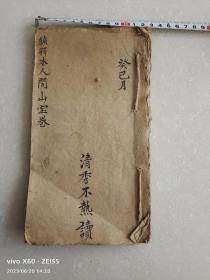 癸巳月
清香不熱讀
本人閭山宝卷
vivo X60 · ZEISS
2023/06/20 14:28